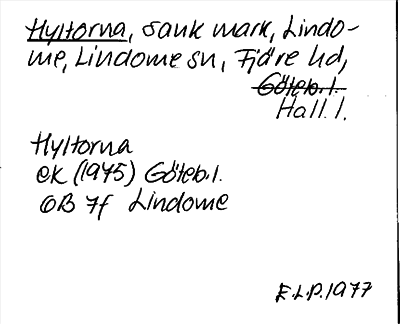 Hyltorna, sank mark, Lindo-
me, Lindome sn, Fjäre hd,
Göteb. l.
Hall. l.
Hyltorna
ek (1975) Göteb. l.
ÖB 7f Lindome
F.L.P. 1977